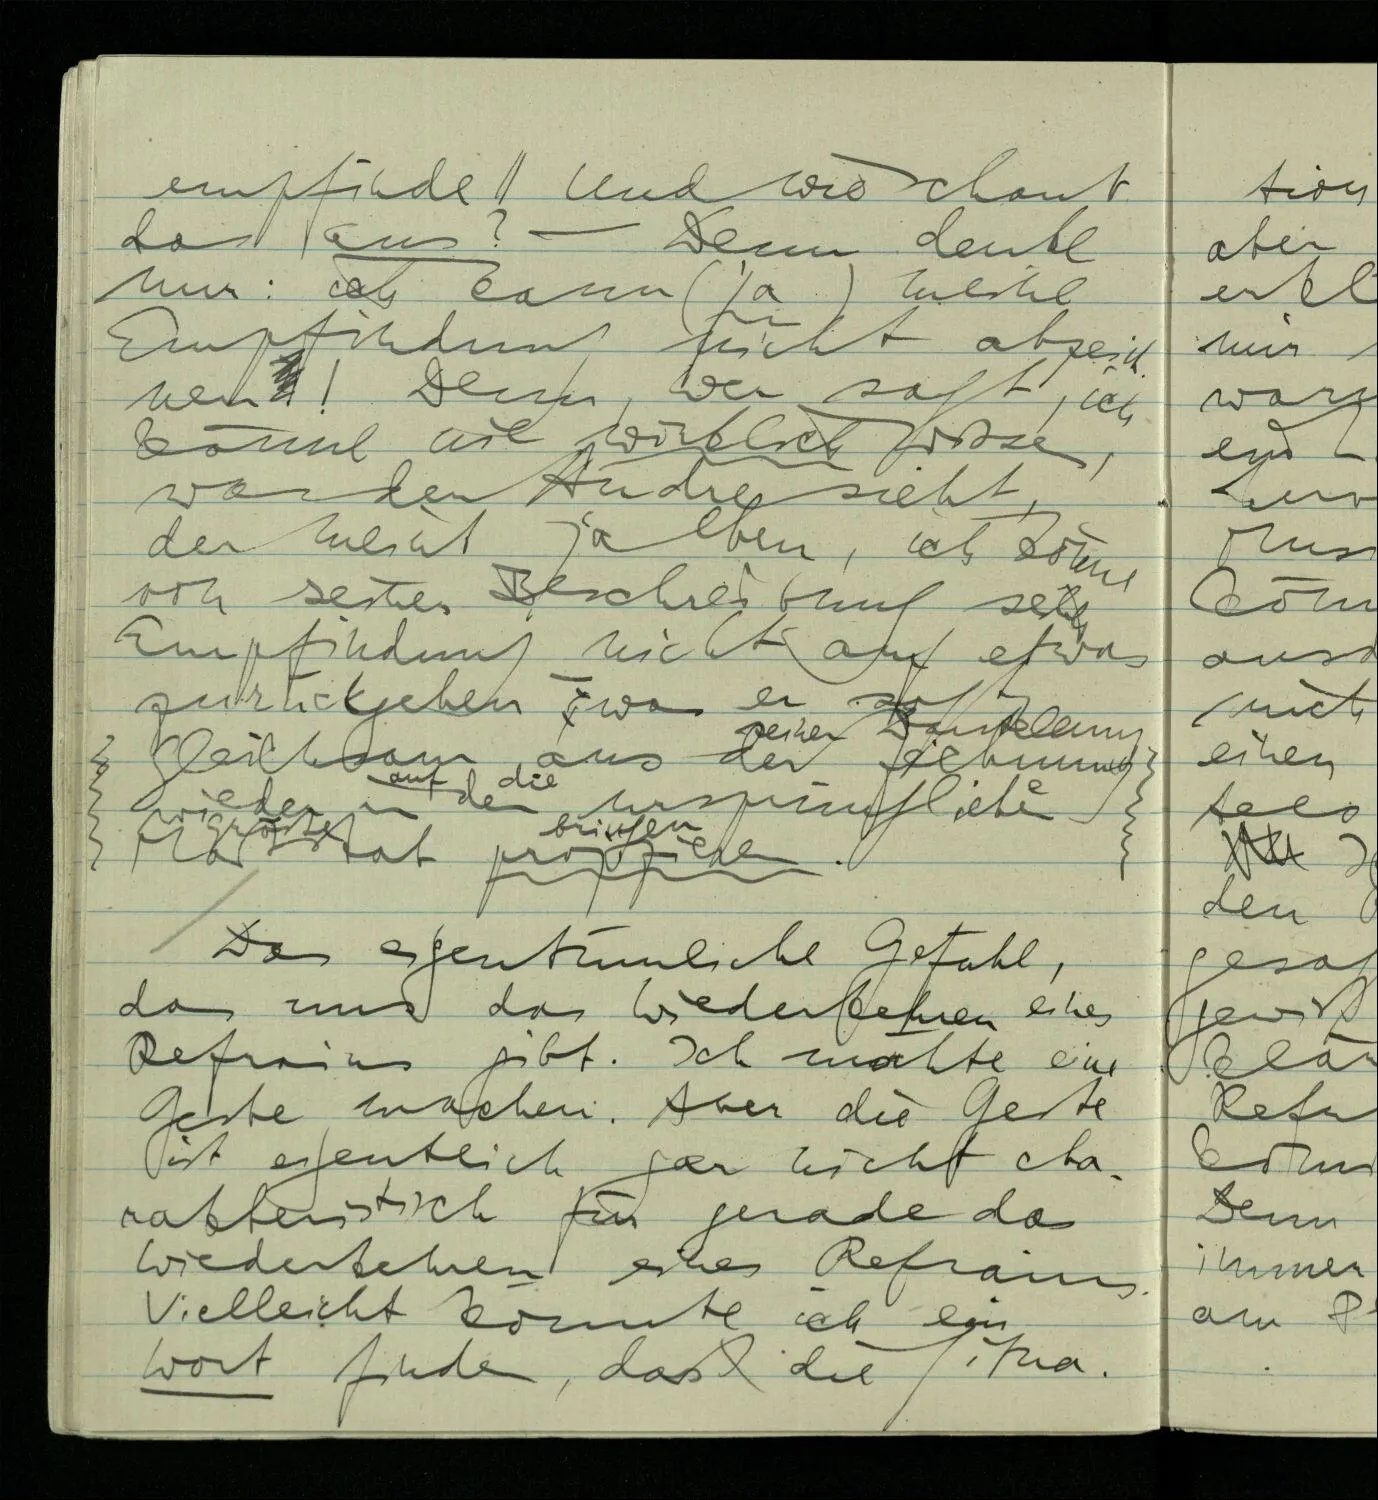 empfinde!! Und wie schaut
das aus? — Denn denke
nur: ich kann (ja) meine
Empfindung nicht abzeich-
nen! Denn, wer sagt, ich
könne nie wirklich wissen,
was der Andre sieht,
der meint ja eben, ich könne
von seiner Beschreibung seiner
Empfindung nicht auf etwas
zurückgehen was er sagt
seiner Darstellung
gleichsam aus der
auf die
wieder in den ursprüngliche
bringen
Das eigentümliche Gefühl,
das uns das Wiederkehren eines
Refrains gibt. Ich möchte eine
Geste machen. Aber die Geste
ist eigentlich gar nicht cha-
rakteristisch für gerade das
Wiederkehren eines Refrains.
Vielleicht könnte ich ein
Wort finden, daß die Situa-
tion
aber
erkl
mir
waru
ein
müss
könn
ausd
nich
einen
den
gesag
gewiß
Refr
könn
Denn
immer
am